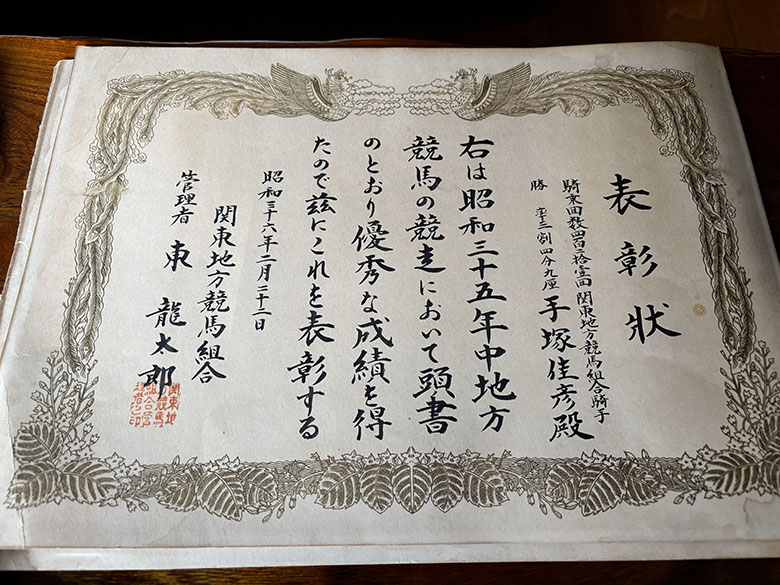 表彰状
騎乗回数四百二拾壱回
勝率三割四分九厘
関東地方競馬組合騎手
手塚佳彦殿
右は昭和三十五年中地方
競馬の競走において頭書
のとおり優秀な成績を得
たので茲にこれを表彰する
昭和三十六年二月二十二日
関東地方競馬組合
管理者 東龍太郎
関東地
方競馬
組合管
理者之印